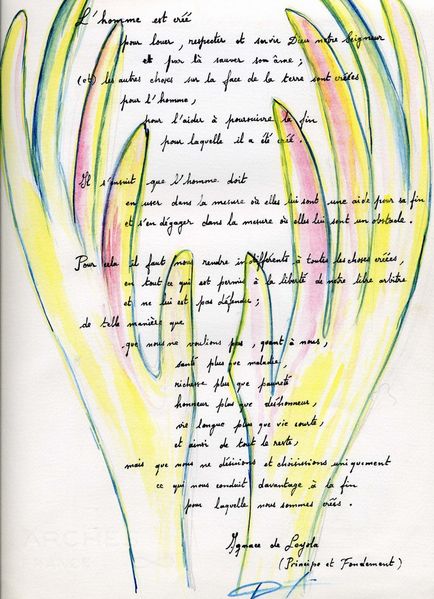 L'homme est créé
pour louer, respecter et servir Dieu notre Seigneur
et par là sauver son âme ;
(et) les autres choses sur la face de la terre sont créées
pour l'homme,
pour l'aider à poursuivre la fin
pour laquelle il a été créé.
Il s'ensuit que l'homme doit
en user dans la mesure où elles lui sont une aide pour sa fin
et s'en dégager dans la mesure où elles lui sont un obstacle.
Pour cela il faut nous rendre indifférents à toutes les choses créées,
en tout ce qui est permis à la liberté de notre libre arbitre
et ne lui est pas défendu ;
de telle manière que
que nous ne voulions pas, quant à nous,
santé plus que maladie,
richesse plus que pauvreté
honneur plus que déshonneur,
vie longue plus que vie courte,
et ainsi de tout le reste,
mais que nous ne désirions et choisissions uniquement
ce qui nous conduit davantage à la fin
pour laquelle nous sommes créés.
ARCHES
Ignace de Loyola
(Principe et Fondement)